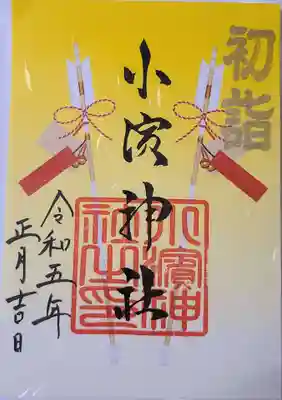 初詣
小濱神社
小濱神社之印
令和五年
正月吉日